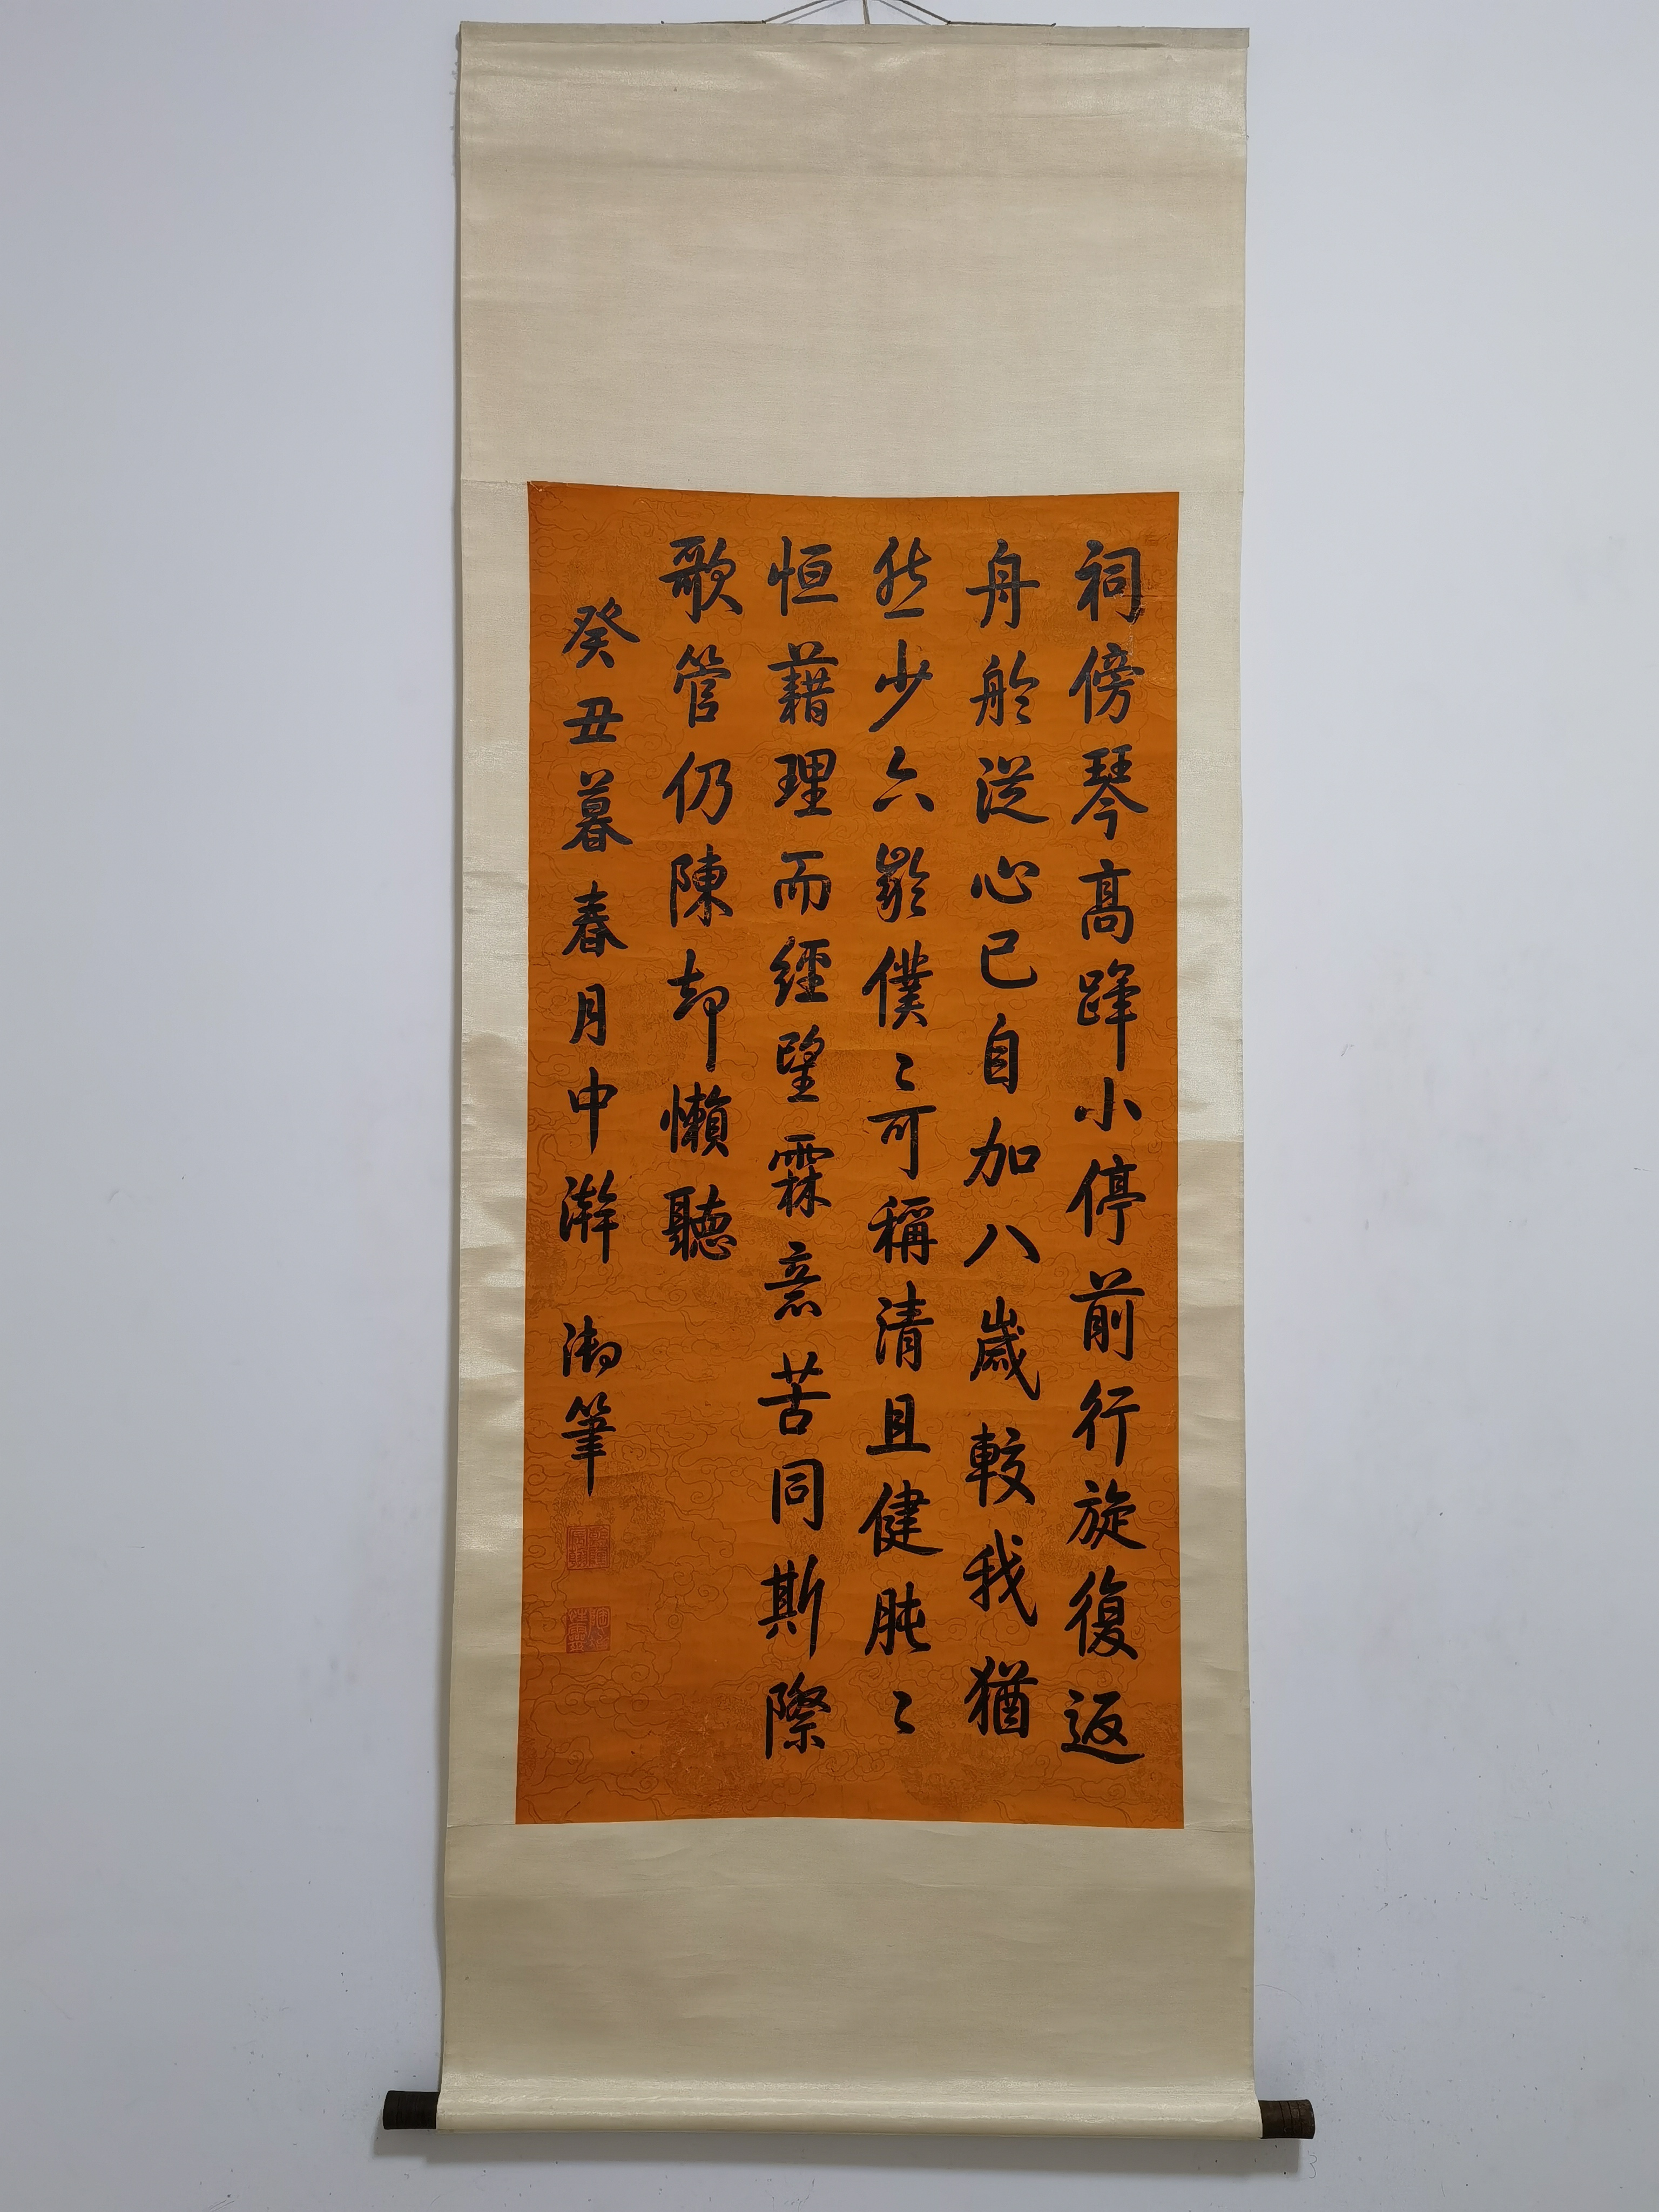 祠傍琴高蹕小停前行旋復返
舟舲從心已自加八歲較我猶
然少六齡僕〻可稱清且健肫〻
恒藉理而經望霖意苦同斯際
歌管仍陳却懶聽
癸丑暮春月中澣 御筆
乾隆宸翰